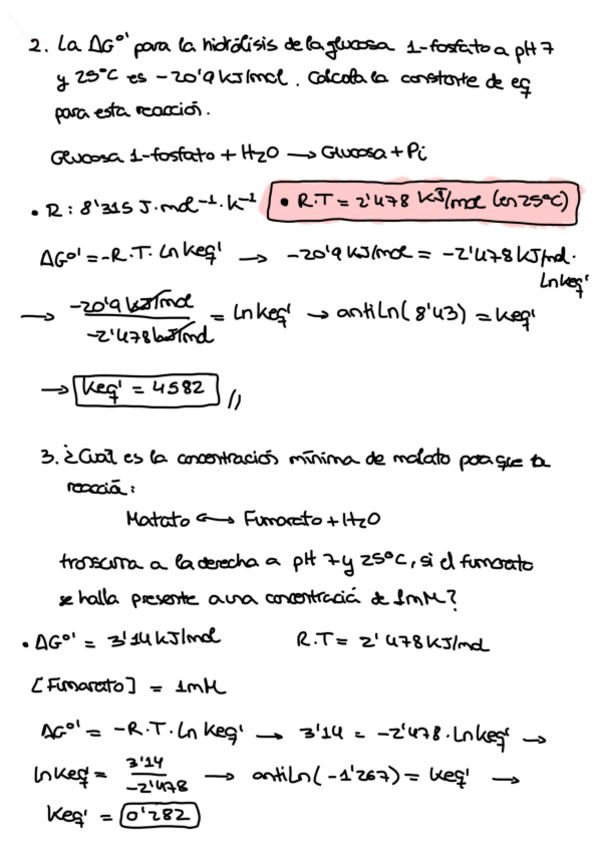 2. La ΔG°' para la hidrólisis de la glucosa 1-fosfato a pH 7
y 25°C es -20'9 kJ/mol. Calcula la constante de eq
para esta reacción.
Glucosa 1-fosfato + H2O → Glucosa + Pi
• R: 8'315 J·mol⁻¹·k⁻¹ • R.T = 2'478 kJ/mol (en 25°C)
ΔG°' = -R.T. Ln Keq' → -20'9 kJ/mol = -2'478 kJ/mol·
Ln keq'
→ -20'9 kJ/mol / -2'478 kJ/mol = Ln keq' → antiLn(8'43) = keq'
→ Keq' = 4582 //
3. ¿Cuál es la concentración mínima de malato para que la
reacción:
Malato ↔ Fumarato + H2O
transcurra a la derecha a pH 7 y 25°C, si el fumarato
se halla presente a una concentración de 1mM?
• ΔG°' = 3'14 kJ/mol R.T = 2'478 kJ/mol
[Fumarato] = 1mM
ΔG°' = -R.T. Ln keq' → 3'14 = -2'478 · Ln keq' →
Ln keq' = 3'14 / -2'478 → antiLn(-1'267) = keq' →
Keq' = 0'282